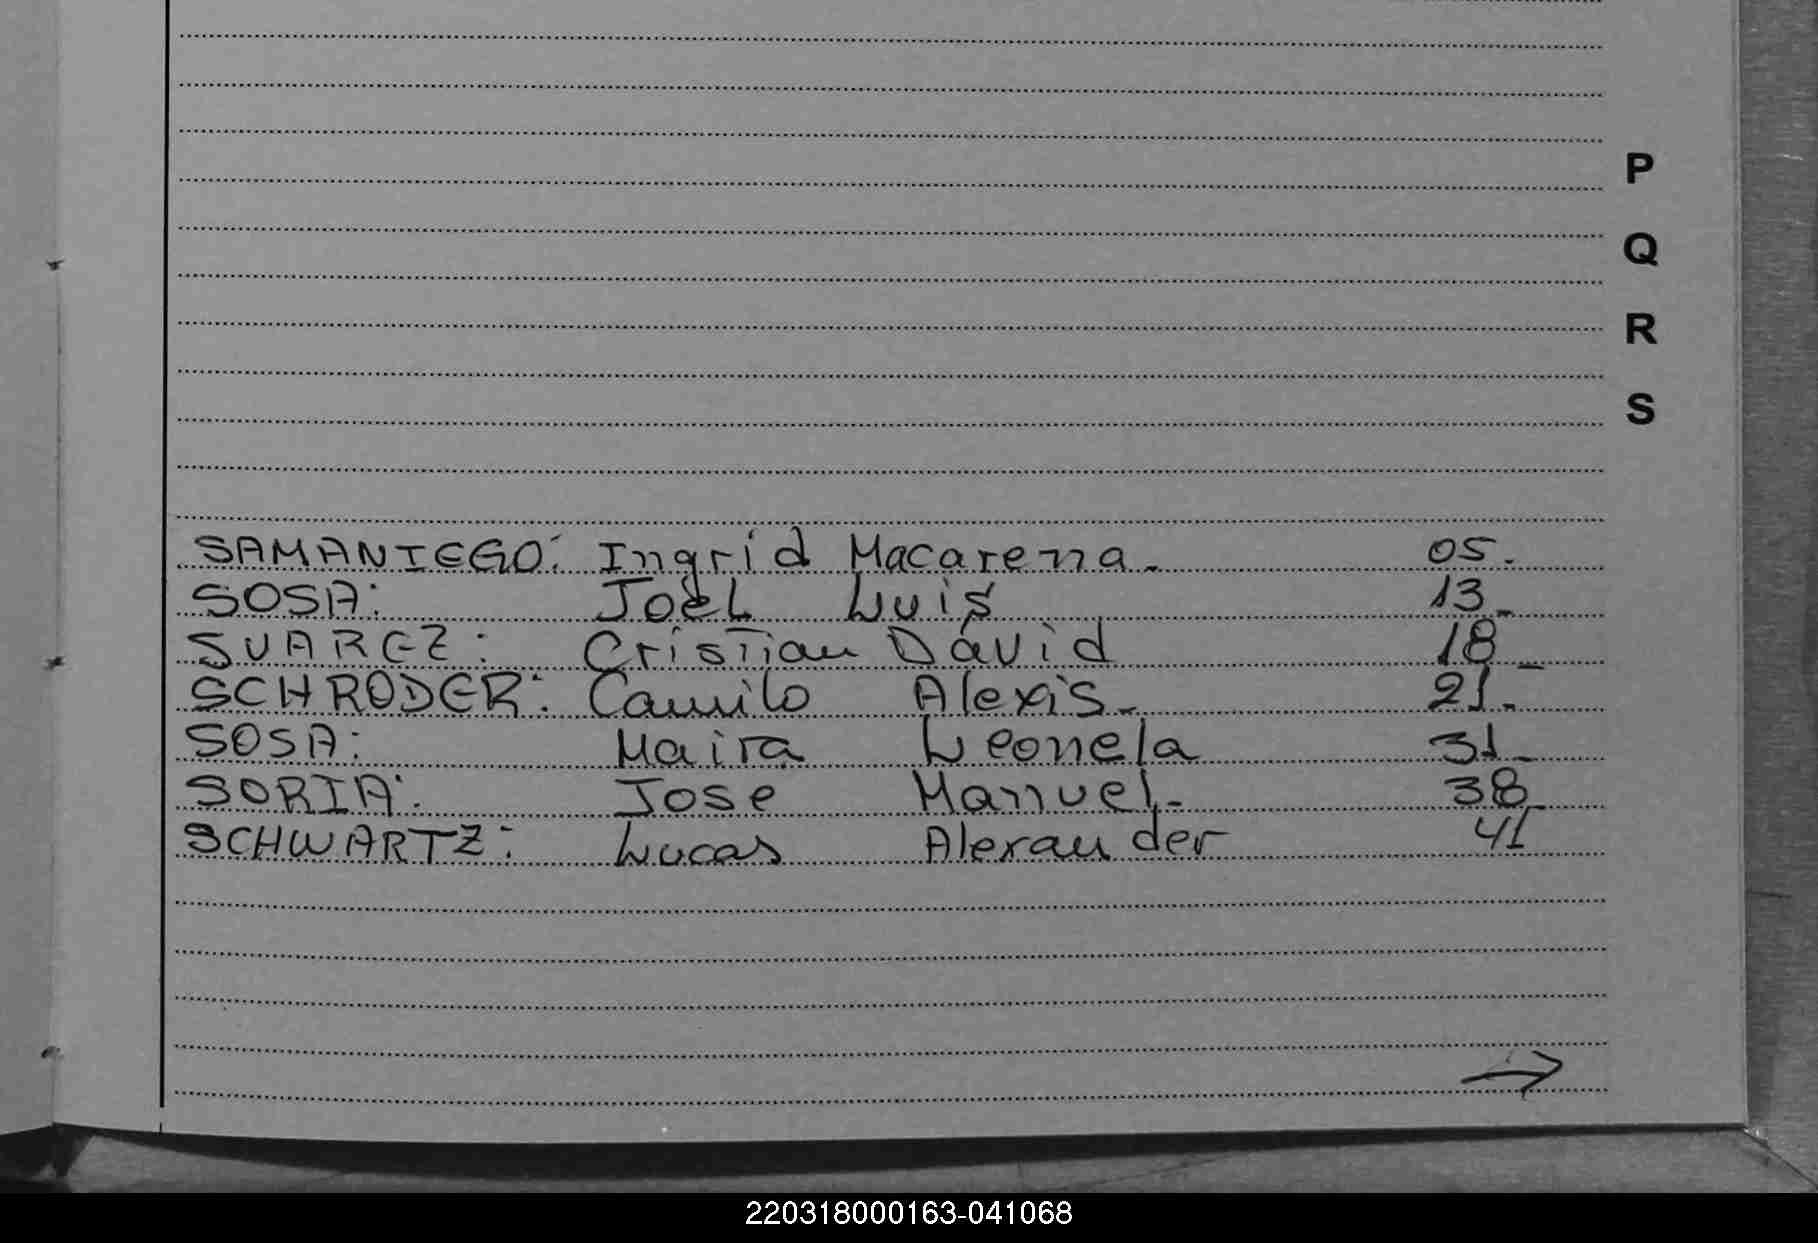 P
Q
R
S
SAMANIEGO: Ingrid Macarena. 05.
SOSA: Joel Luis 13_
SUAREZ: Cristian David 18_
SCHRODER: Camilo Alexis_ 21.
SOSA: Maira Leonela 31_
SORIA: Jose Manuel_ 38_
SCHWARTZ: Lucas Alexander 41
→
220318000163-041068